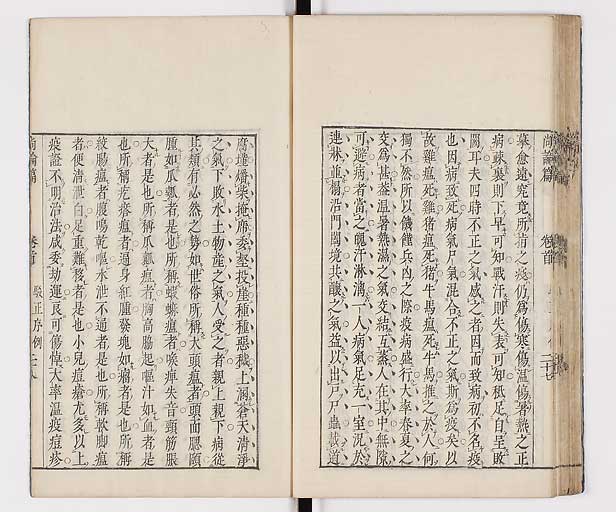 摹愈遠究竟所指之疫仍爲傷寒傷溫傷暑熱之正
病疎裏則下早可知戰汗則失表可知秪足自呈敗
闕耳夫四時不正之氣感之者因而致病初不名疫
也因病致死病氣尸氣混合不正之氣斯爲疫矣以
故雞瘟死雞猪瘟死猪牛馬瘟死牛馬推之於人何
獨不然所以饑饉兵凶之際疫病盛行大率春夏之
交爲甚葢溫暑熱濕之氣交結互蒸人在其中無隙
可避病者當之魄汗淋漓一人病氣足充一室況於
連牀並榻沿門闔境共釀之氣益以出戶尸蟲載道
尙論篇
卷首
二十七
腐墐燔柴掩席委壑投崖種種惡穢上溷蒼天清淨
之氣下敗水土物產之氣人受之者親上親下病從
其類有必然之勢如世俗所稱大頭瘟者頭面腮頤
腫如瓜瓠者是也所稱蝦蟆瘟者喉痺失音頸筋脹
大者是也所稱瓜瓤瘟者胸高脇起嘔汁如血者是
也所稱疙瘩瘟者遍身紅腫發塊如瘤者是也所稱
絞腸瘟者腹鳴乾嘔水泄不通者是也所稱軟脚瘟
者便清泄白足重難移者是也小兒痘瘡尤多以上
疫證不明治法咸委劫運良可傷悼大率溫疫痘疹
尙論篇
卷首
駁正序例
二十八